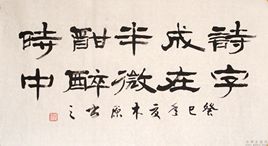 詩成半酣時
字在微醉中
癸巳夏木原书之